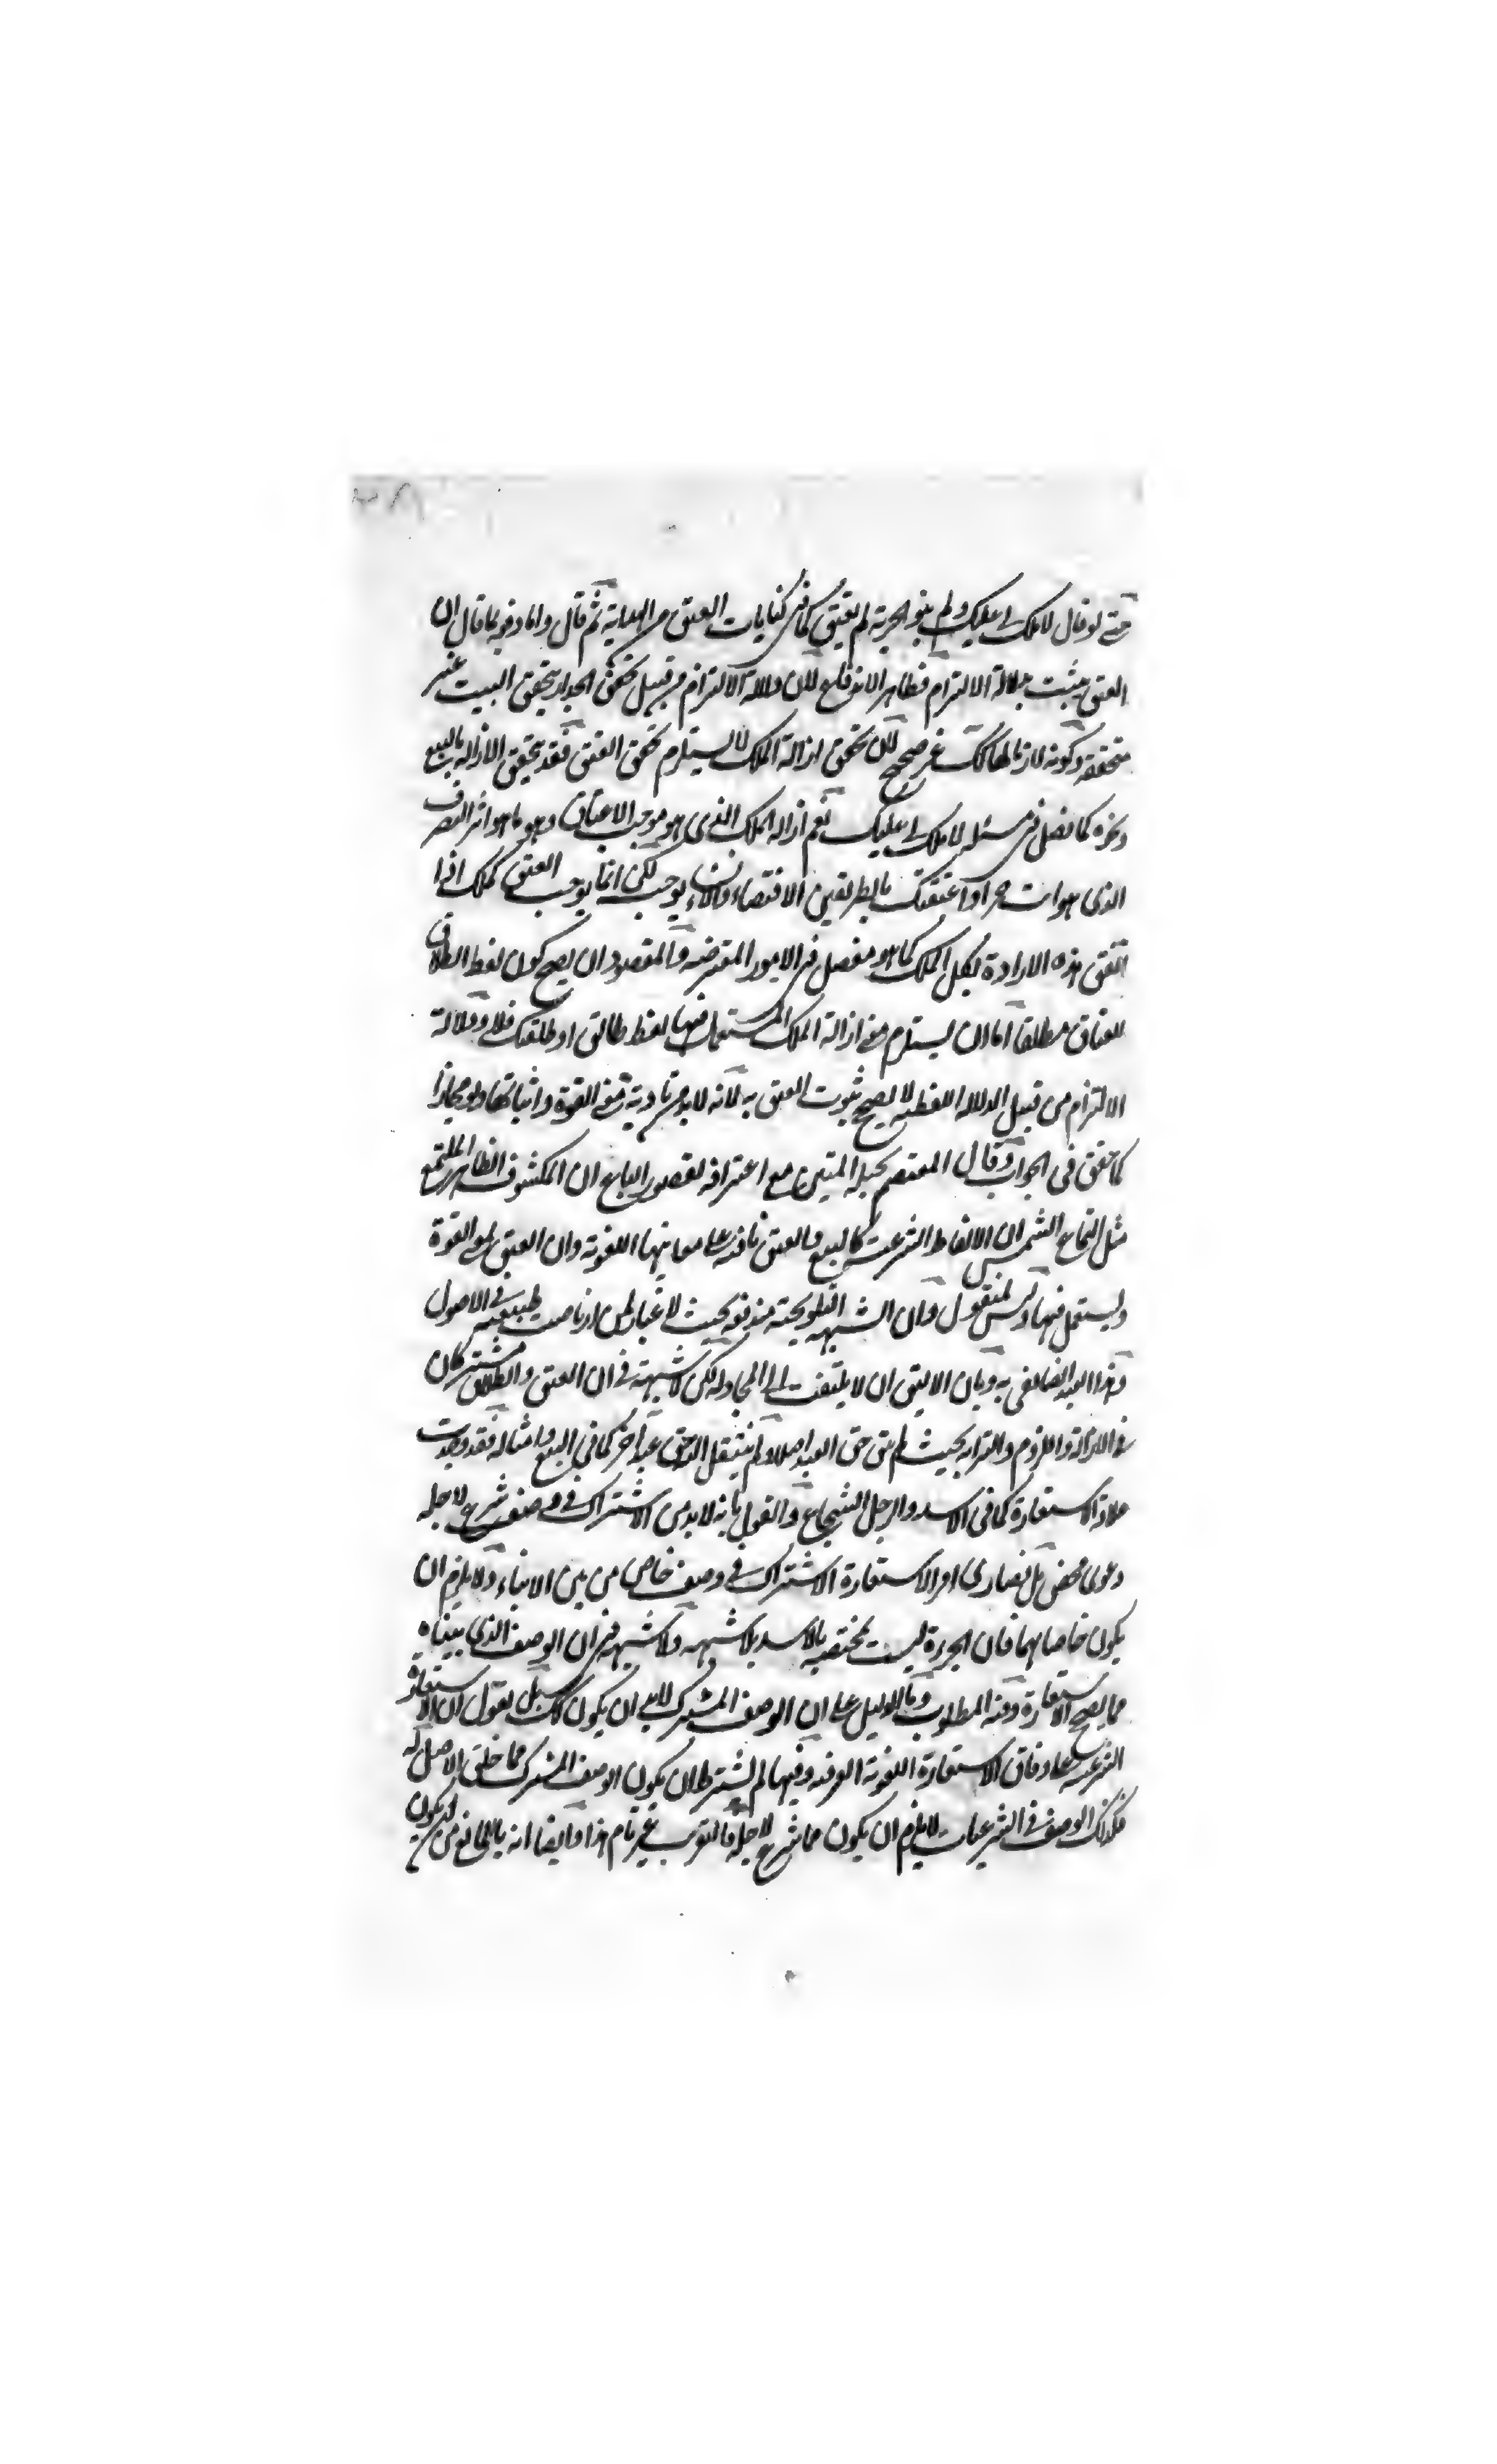 حتى لو قال لا ملك لي عليك ولم ينو الحرية لم يعتق كما في كنايات العتق من الهداية ثم قال واما دفعه بما قال ان
العتق يثبت بدلالة الالتزام فظاهر الاندفاع لان دلالة الالتزام من قبيل تحقق الجدار بتحقق البيت غير
متحققة وكونه لازما لها كك غير صحيح لان تحقق ازالة الملك لا يستلزم تحقق العتق فقد يتحقق الازالة بالبيع
ونحوه كما فصل في مسئلة لا ملك لي عليك نعم ازالة الملك الذي هو موجب الاعتاق وهو ما هو اثر التصرف
الذي هو انت حر او اعتقتك بالطريقين الاقتضاء والانشاء يوجب لكن انما يوجب العتق كملك اذا
اتفق هذه الارادة بكل الملك كما هو مفصل في الامور المقترضه والمقصود ان يصح كون لفظ الطلاق
للعتاق مطلقا اما ان يستلزم معنى ازالة الملك المستعمل فيها لفظ طالق او طلقتك فلا ودلالة
الالتزام من قبيل الدلالة اللفظية لا يصح ثبوت العتق به لانه لا بد من تادية معنى القوة واثباتها ولو مجازا
كما حقق في الجواب وقال المعتصم بحبله المتين مع اعترافه لقصور الباع ان المكشوف الظاهر الملتمع
مثل التماع الشمس ان الالفاظ الشرعية كالبيع والعتق نافذة على معانيها اللغوية وان العتق لمعنى القوة
ويستعمل فيها وليس بمنقول وان الشبهة التلويحية مندفعة بحيث لا غبار لمن ارتاضت طبيعته في الاصول
وهذا العبد ايضا لفي به وبان الاليق ان لا يلتفت الى المجادلة لكن لا شبهة في ان العتق والطلاق مشتركان
في الازالة واللزوم والسراية بحيث لم يبق حق العبد اصلا ولم ينتقل الى حق عبد آخر كما في البيع وامثاله فقد وجدت
علاقة الاستعارة كما في الاسد والرجل الشجاع والقول بانه لا بد من الاشتراك في وصف شرع لاجله
دعوى محض بل قصارى امر الاستعارة الاشتراك في وصف خاص من بين الاشياء ولا يلزم ان
يكون خاصا بهما فان الجرءة ليست بمختصة بالاسد بلا شبهة ولا شبهة في ان الوصف الذي بيناه
مما يصح الاستعارة وفيه المطلوب وما الدليل على ان الوصف المشترك لا بد ان يكون كك بل نقول ان الاستعارة
الشرعية على وفاق الاستعارة اللغوية العرفية وفيها لم يشترط ان يكون الوصف المشترك مما خلق الاصل له
فكذلك الوصف في الشرعيات لا يلزم ان يكون مما شرع لاجله فالتقريب غير تام هذا وايضا انه ما المانع من ان يكون